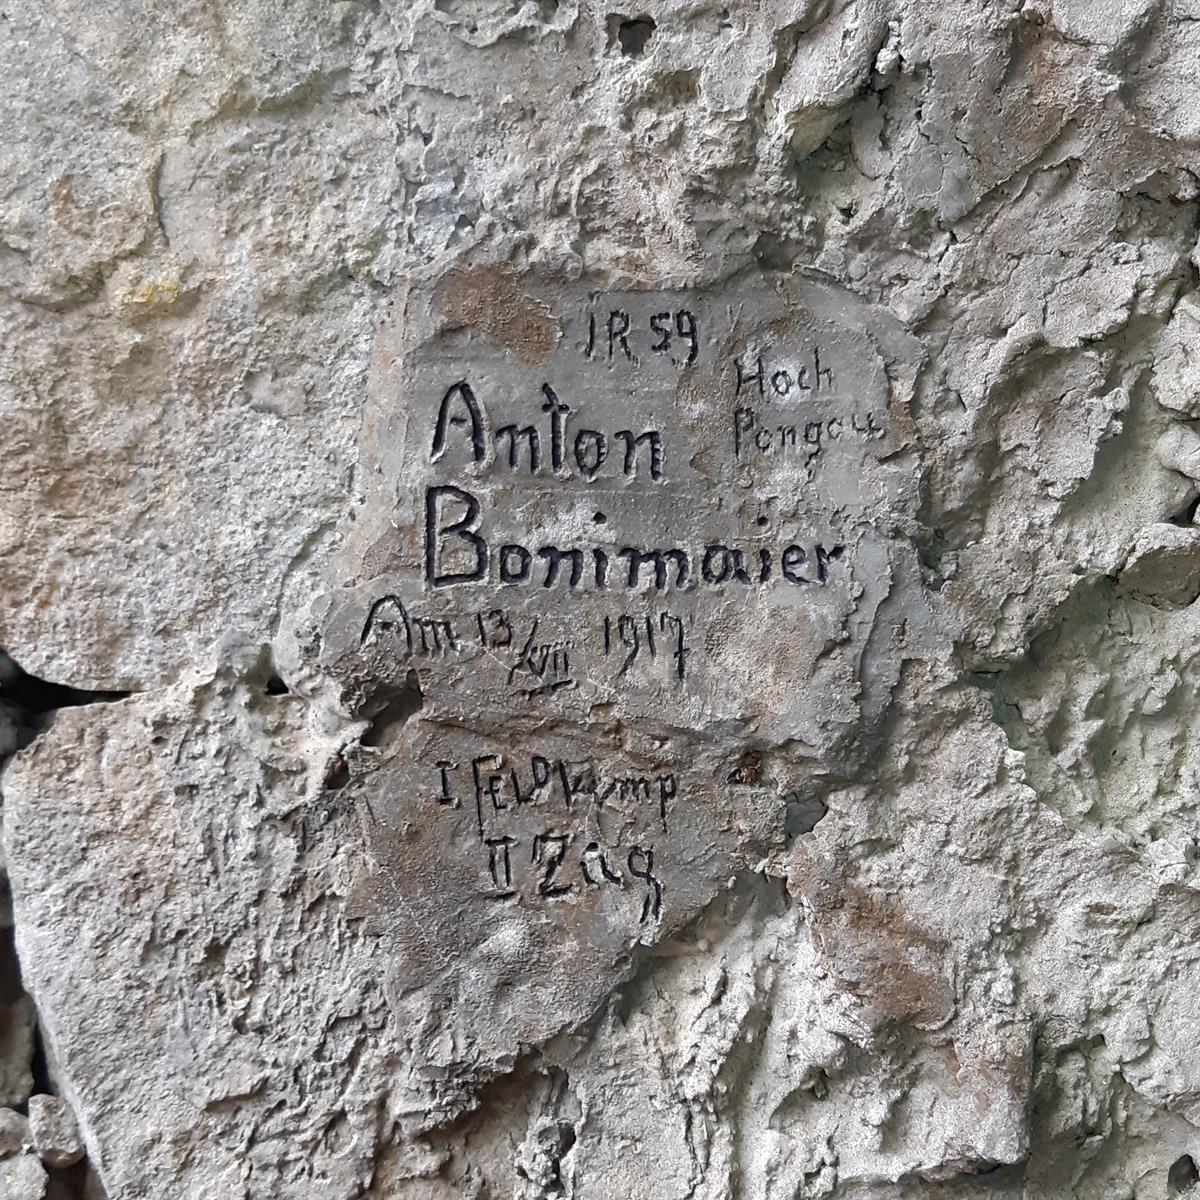 IR 59
Hoch
Pongau
Anton
Bonimaier
Am 13/VII 1917
I FELDKomp
II Zug